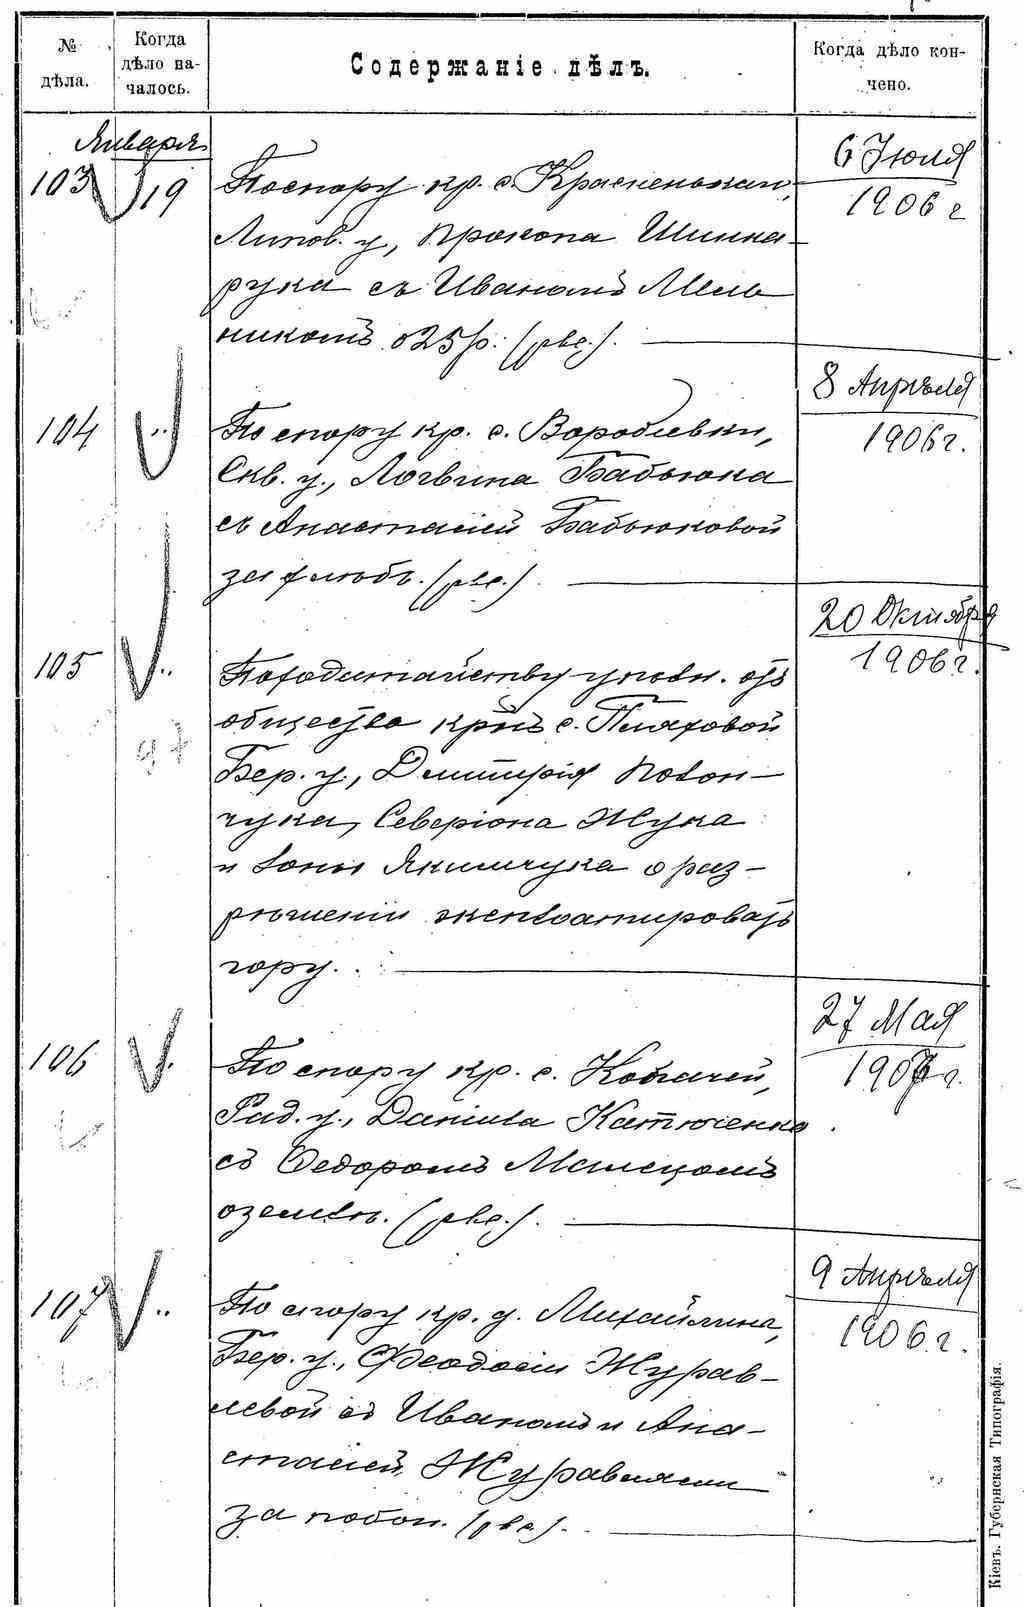 № дѣла.
Когда дѣло на-чалось.
Содержаніе дѣлъ.
Когда дѣло кон-чено.
Января
103 19
По спору кр. с. Красненькая,
Липов. у., Прокопа Шинка-
рука съ Иваномъ Мель
никомъ о 25 р. (рве.).
6 Іюля
1906 г
104 „
По спору кр. с. Воробіевки,
Скв. у., Логвина Бабьюка
съ Анастасіей Бабьюковой
за (рве.).
8 Апрѣля
1906 г.
105 „
По ходатайству уполн. отъ
общества крнъ с. Пляховой
Бер. у., Дмитрія Повон-
чука, Северіона Жука
и Іоны Якимчука о раз-
рѣшеніи эксплоатировать
гору.
20 Октября
1906 г.
106 „
По спору кр. с.
Рад. у., Даніила Катюченко
съ Федоромъ
о землѣ. (рве.).
27 Мая
1907 г.
107 „
По спору кр. д. Михайлина,
Бер. у., Феодосіи Журав-
левой съ Иваномъ и Ана-
стасіей Журавлями
за побои. (рве.).
9 Апрѣля
1906 г.
Кіевъ. Губернская Типографія.